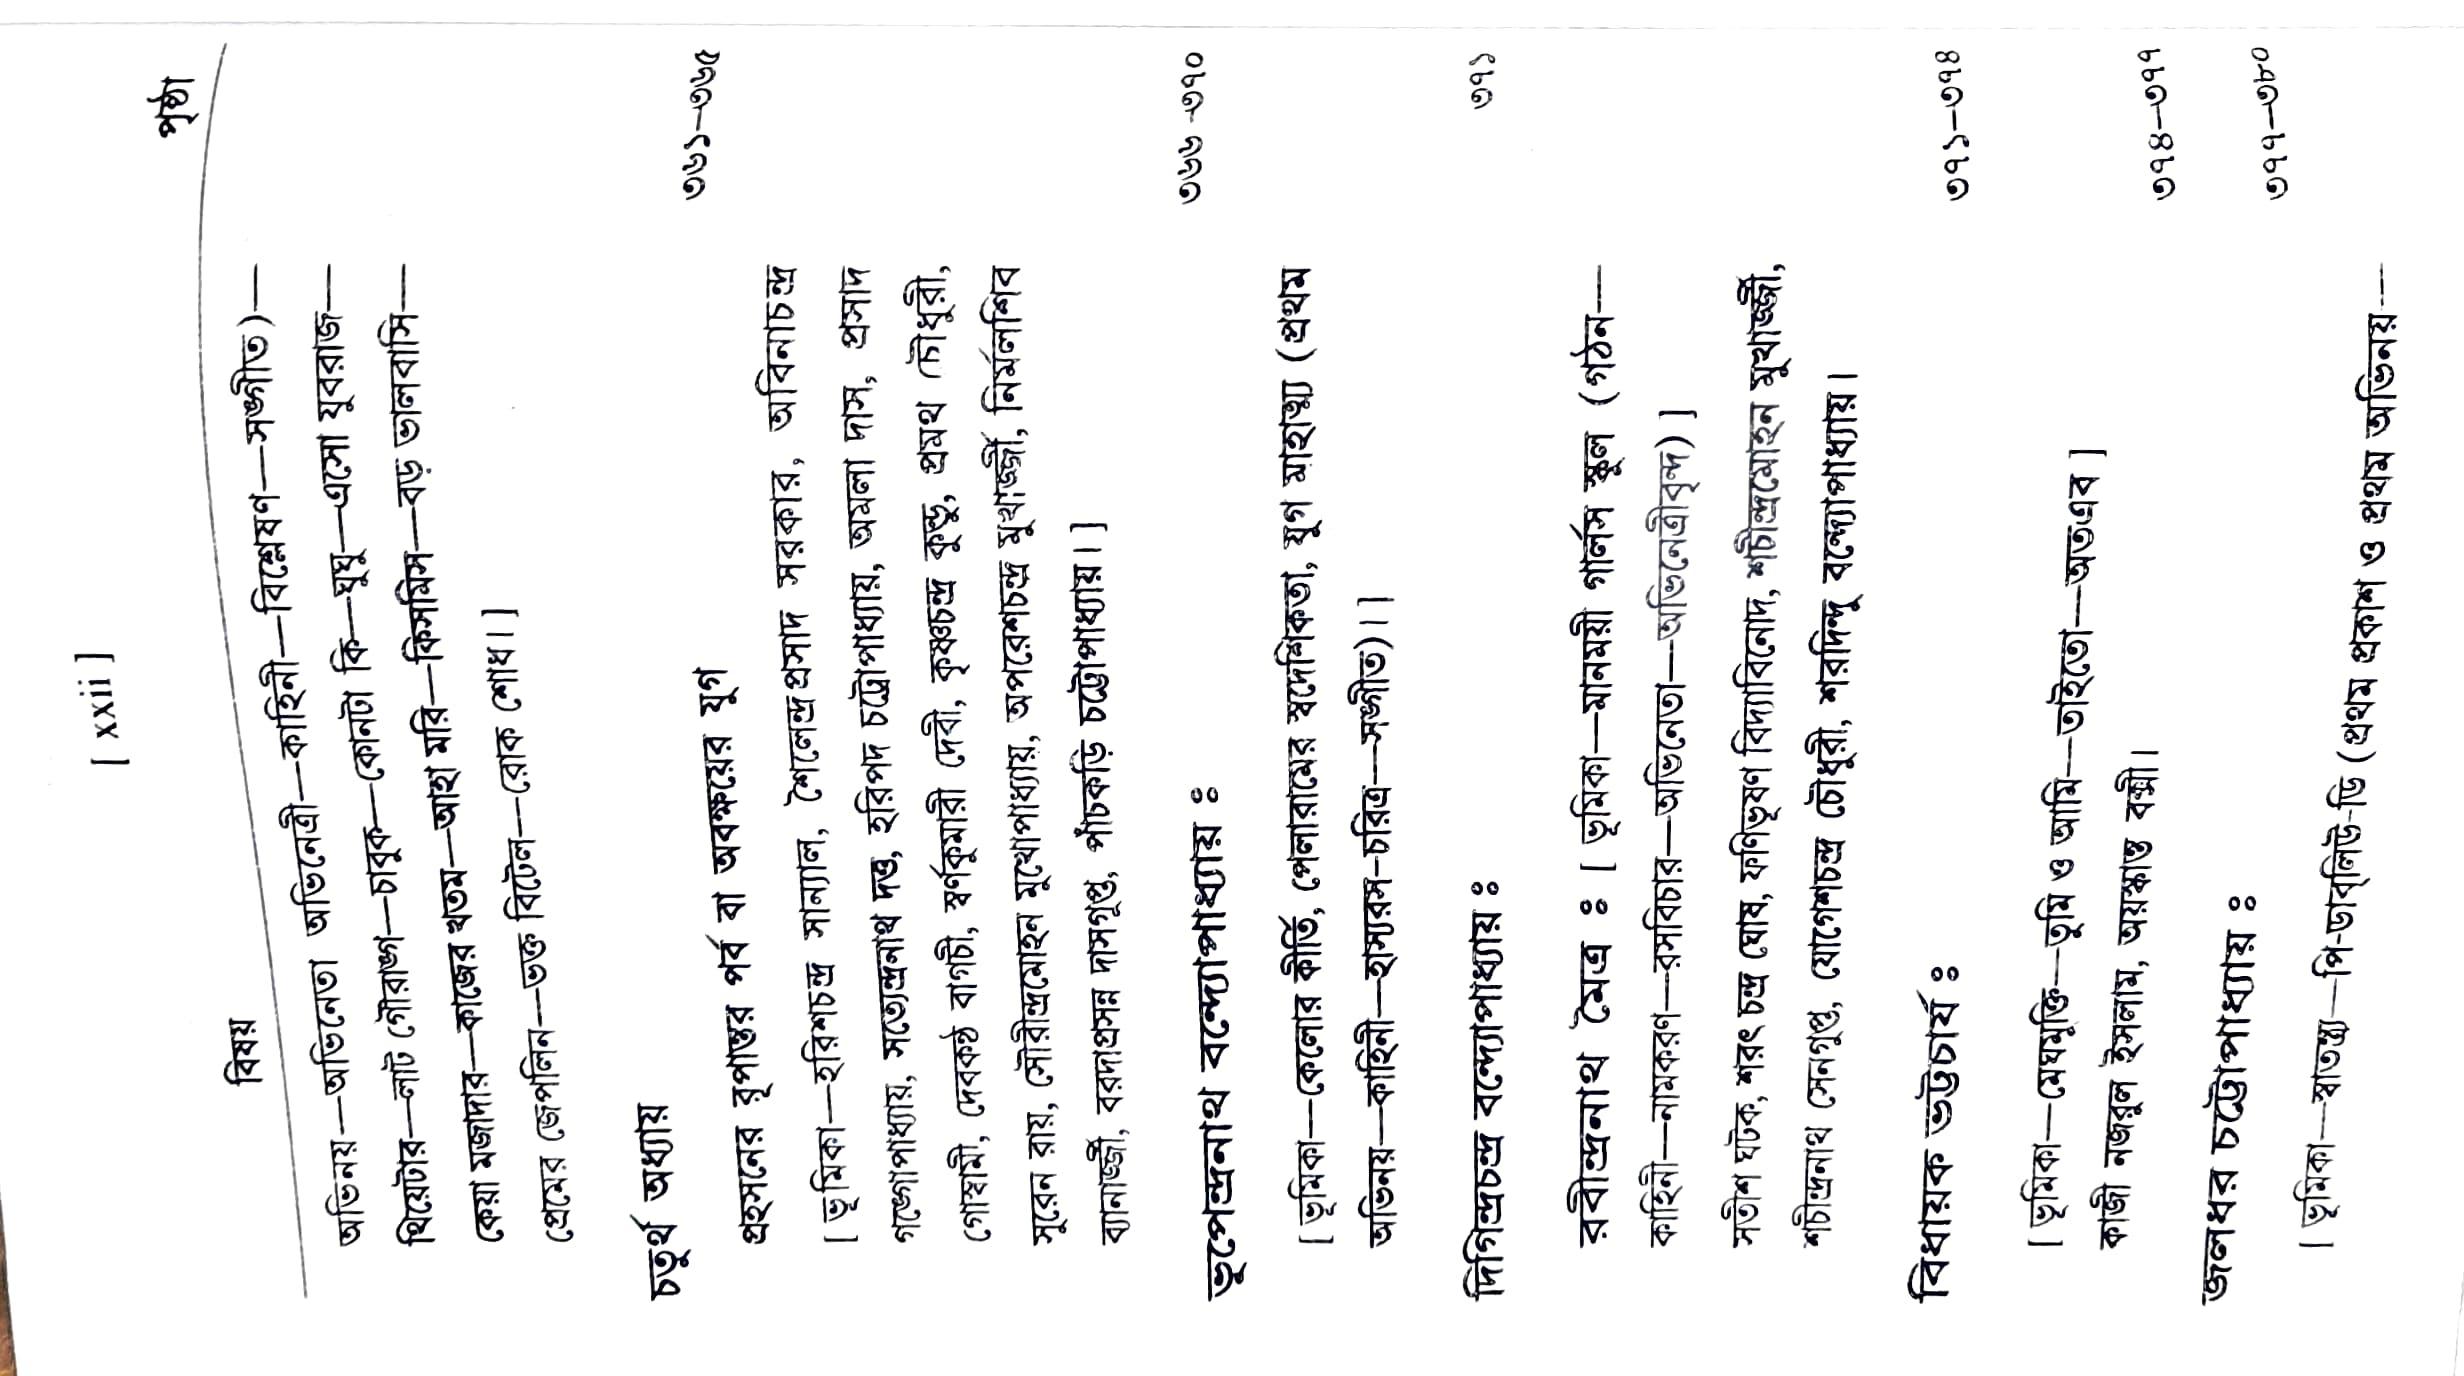 [ xxii ]
বিষয় পৃষ্ঠা
অভিনয়—অভিনেতা অভিনেত্রী—কাহিনী—বিশ্লেষণ—সঙ্গীত)—
থিয়েটার—লাট গৌরাঙ্গ—চাবুক—কোনটা কি—ঘুঘু—এসো যুবরাজ—
কেয়া মজাদার—কাজের খতম—আহা মরি—কিসমিস—বড় ভালবাসি—
প্রেমের জেপলিন—ভক্ত বিটেল—রোক শোধ। ]
চতুর্থ অধ্যায়
প্রহসনের রূপান্তর পর্ব বা অবক্ষয়ের যুগ ৩৬১—৩৬৫
[ ভূমিকা—হরিশচন্দ্র সান্যাল, শৈলেন্দ্রপ্রসাদ সরকার, অবিনাচন্দ্র
গঙ্গোপাধ্যায়, সত্যেন্দ্রনাথ দত্ত, হরিপদ চট্টোপাধ্যায়, অমলা দাস, প্রসাদ
গোস্বামী, দেবকন্ঠ বাগচী, স্বর্ণকুমারী দেবী, কৃষ্ণচন্দ্র কুন্ডু, প্রমথ চৌধুরী,
সুরেন রায়, সৌরীন্দ্রমোহন মুখোপাধ্যায়, অপরেশচন্দ্র মুখার্জ্জী, নির্মলশিব
ব্যানার্জ্জী, বরদাপ্রসন্ন দাসগুপ্ত, পাঁচকড়ি চট্টোপাধ্যায়। ]
ভূপেন্দ্রনাথ বন্দ্যোপাধ্যায় ঃ ৩৬৬-৩৭০
[ ভূমিকা—কেলোর কীর্তি, পেলারামের স্বদেশিকতা, যুগ মাহাত্ম্য (প্রথম
অভিনয়—কাহিনী—হাস্যরস–চরিত্র—সঙ্গীত)। ]
দিগিন্দ্রচন্দ্র বন্দ্যোপাধ্যায় ঃ ৩৭১
রবীন্দ্রনাথ মৈত্র ঃ [ ভূমিকা—মানময়ী গার্লস স্কুল (গঠন—
কাহিনী—নামকরণ—রসবিচার—অভিনেতা—অভিনেত্রীবৃন্দ) ]
সতীশ ঘটক, শরৎ চন্দ্র ঘোষ, ফণিভূষণ বিদ্যাবিনোদ, শচীন্দ্রমোহন মুখার্জ্জী,
শচীন্দ্রনাথ সেনগুপ্ত, যোগেশচন্দ্র চৌধুরী, শরদিন্দু বন্দ্যোপাধ্যায়।
বিধায়ক ভট্টচার্য ঃ ৩৭১—৩৭৪
[ ভূমিকা—মেঘমুক্তি—তুমি ও আমি—তাইতো—অতএব ]
কাজী নজরুল ইসলাম, অয়স্কান্ত বক্সী। ৩৭৪—৩৭৭
জলধর চট্টোপাধ্যায় ঃ ৩৭৭—৩৮০
[ ভূমিকা—স্বাতন্ত্র্য—পি-ডাব্‌লিউ-ডি (প্রথম প্রকাশ ও প্রথম অভিনয়—